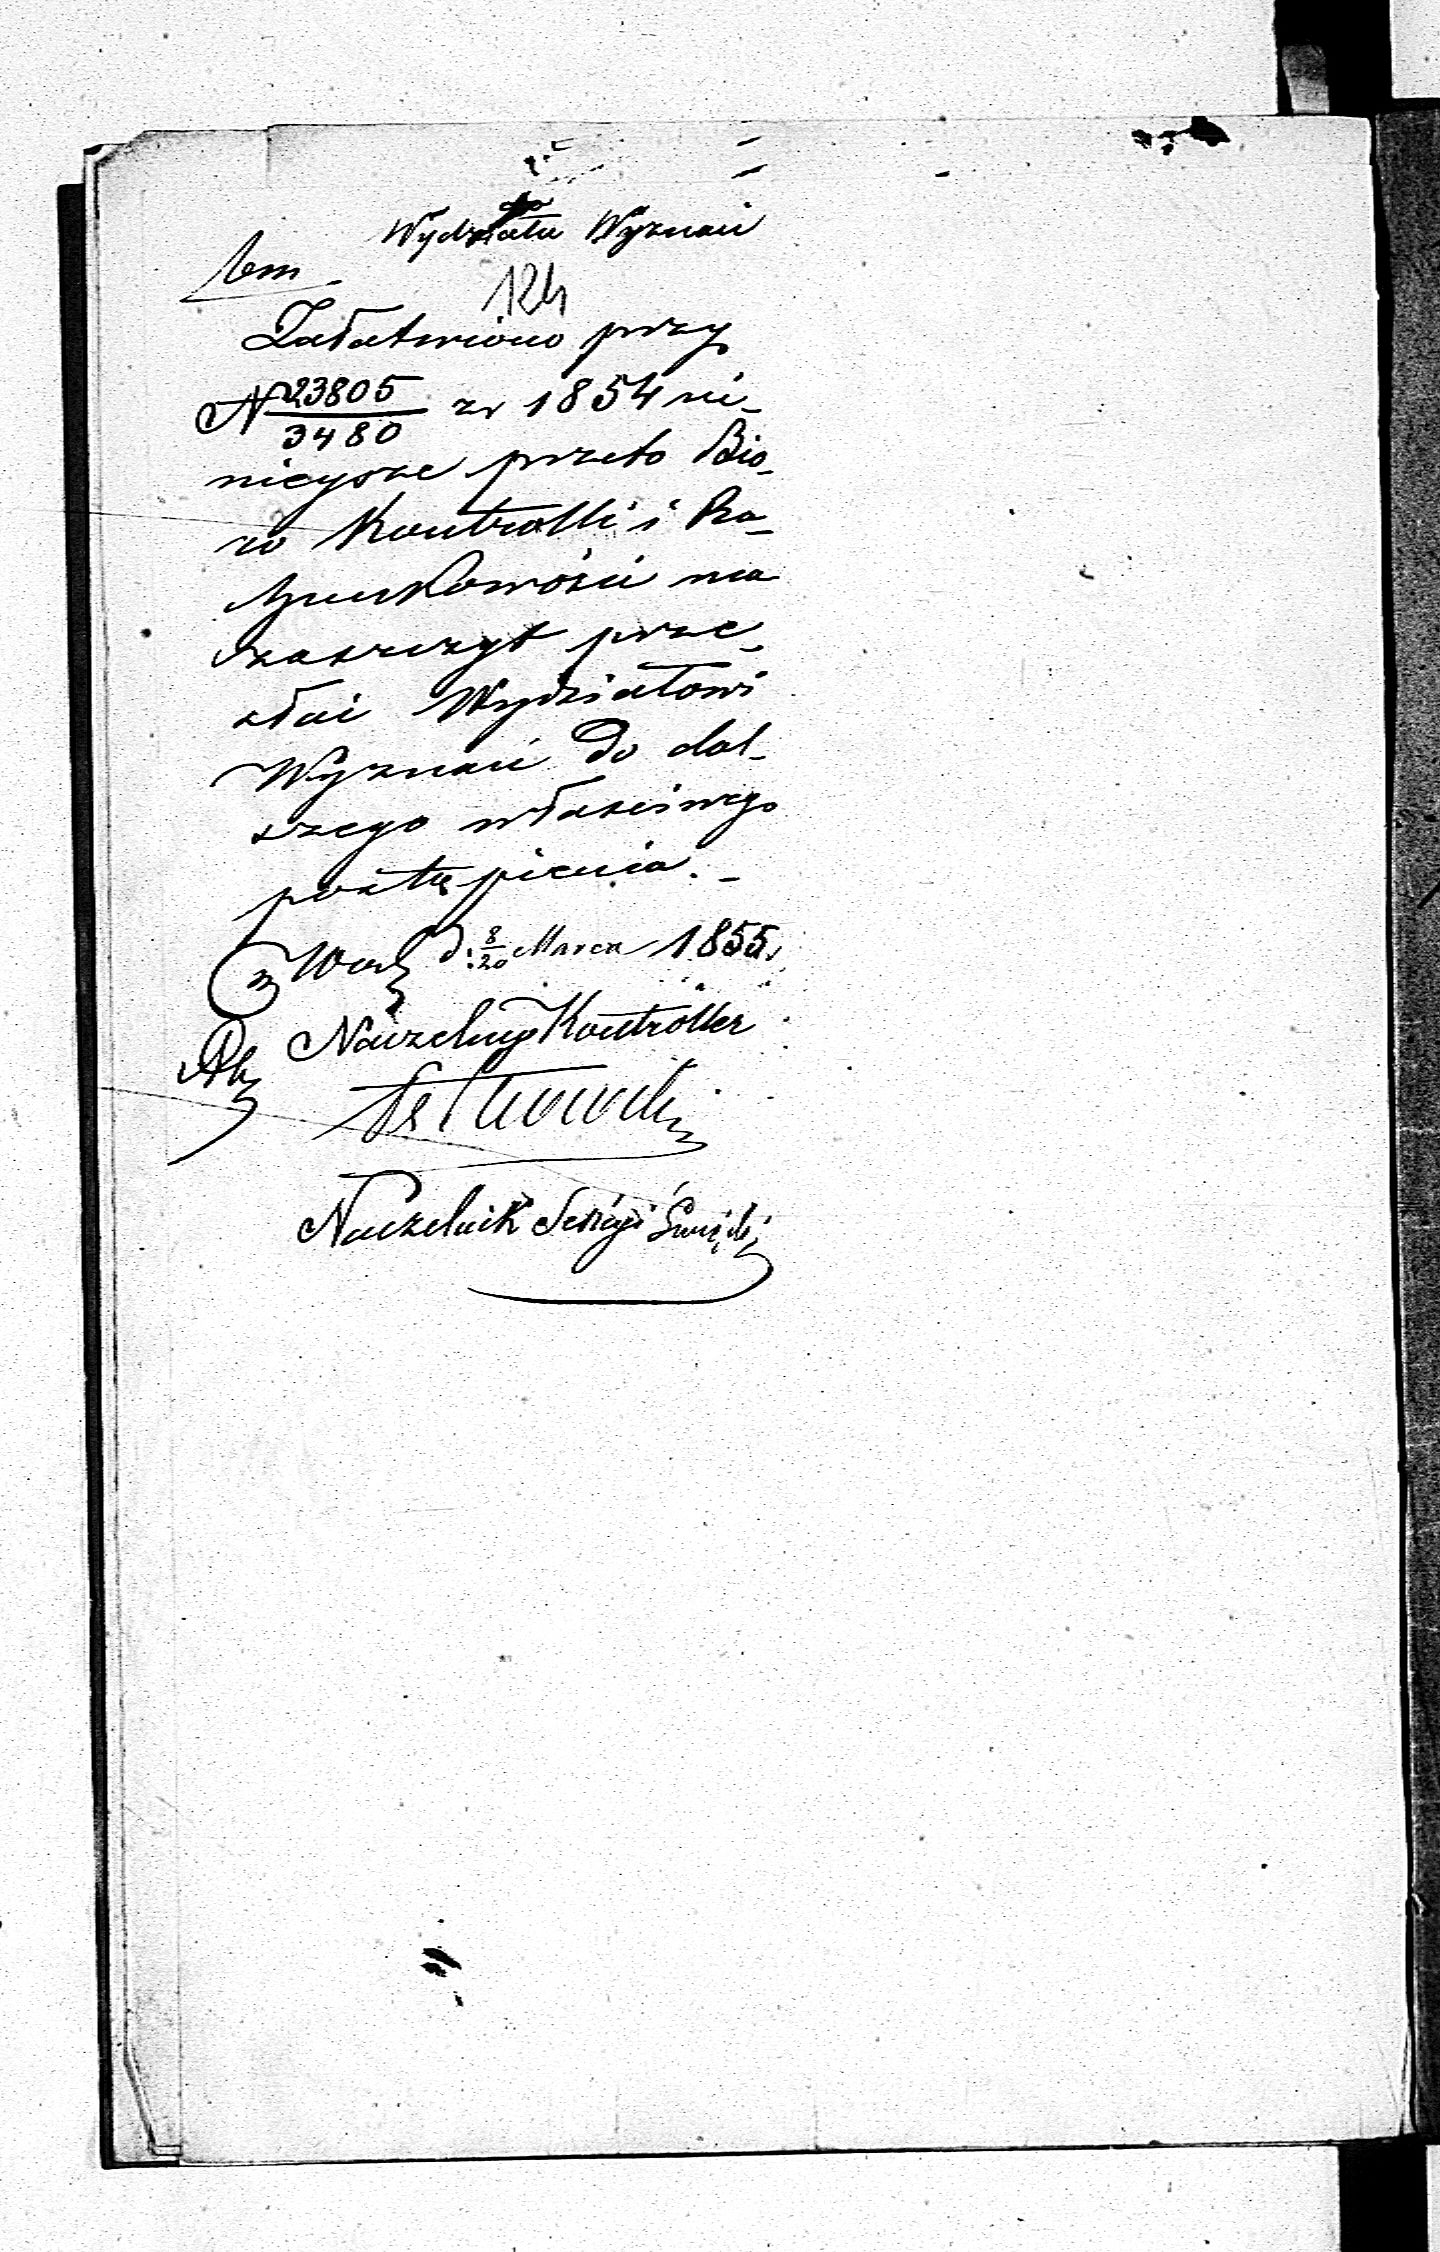 do
Wydziału Wyznań
124
Załatwiono przy
N 23805/3480 z r 1854 ni-
nieysze przeto Bió-
ro Kontrolli i Ra-
chunkowości ma
zaszczyt prze-
słać Wydziałowi
Wyznań do dal-
szego właściwego
postąpienia. -
w War d. 8/20 Marca 1855.
Naczelny Kontroller
Naczelnik Sekcyi